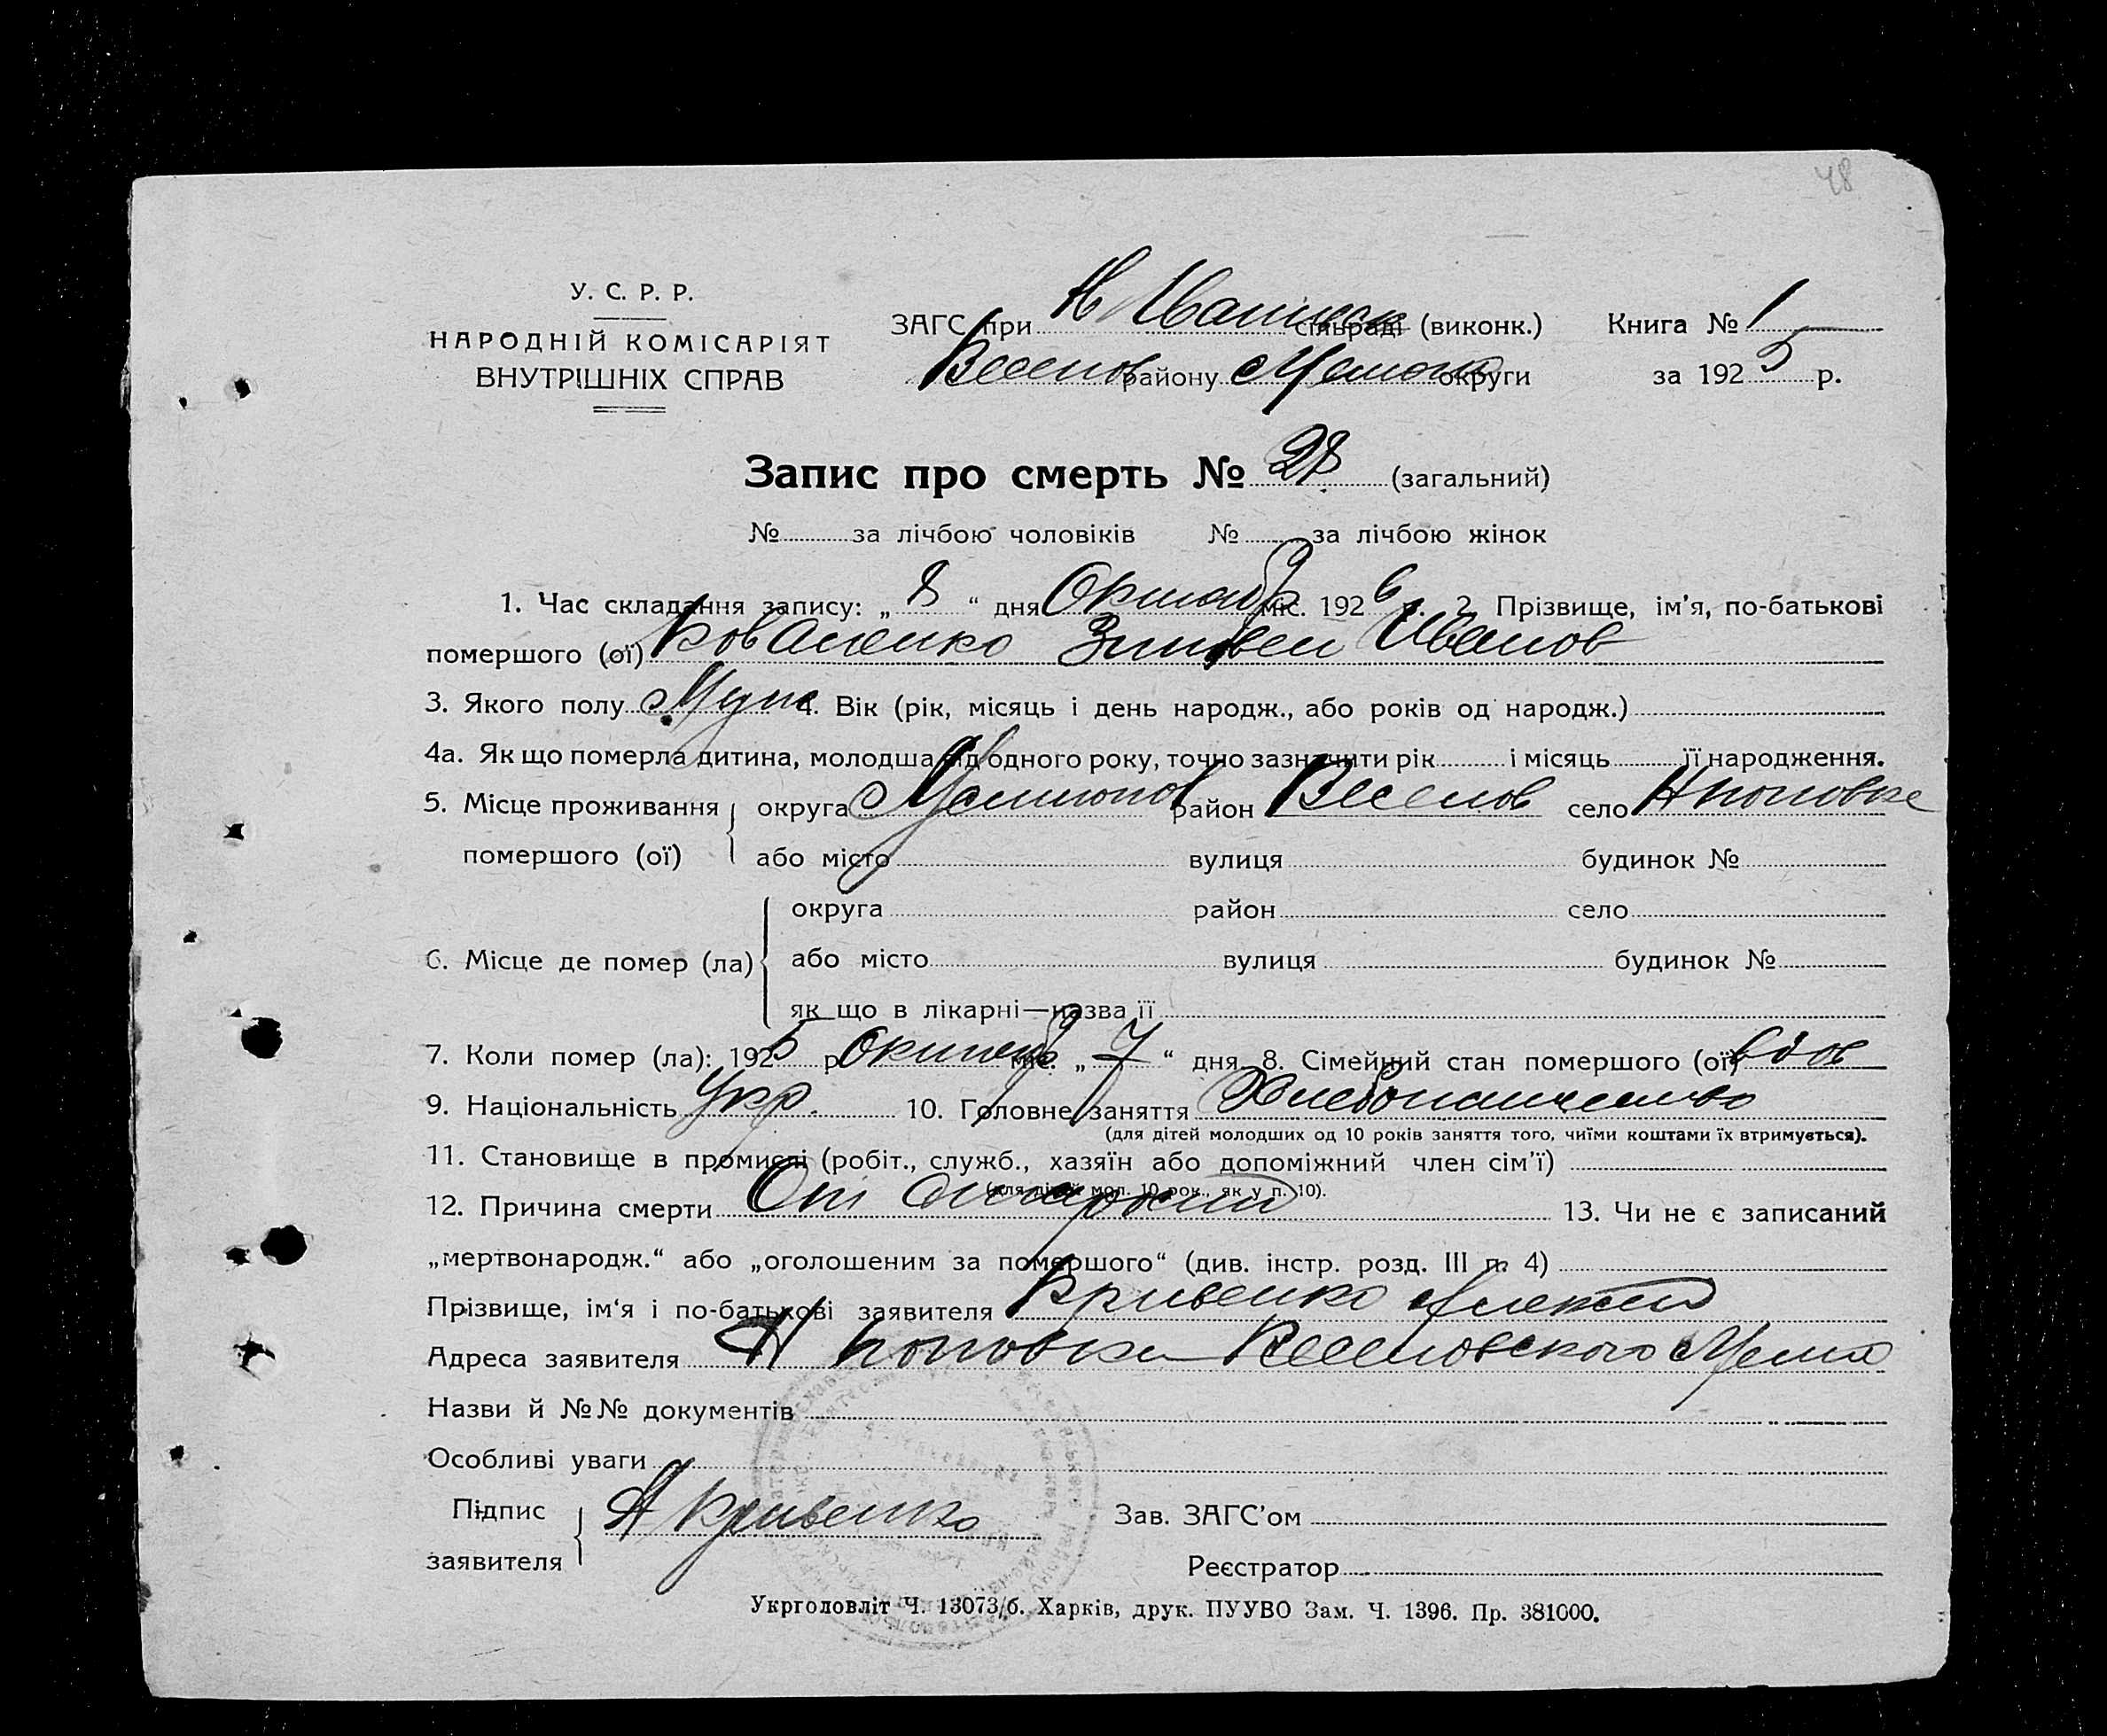 48
У. С. Р. Р.
НАРОДНІЙ КОМІСАРІЯТ
ВНУТРІШНІХ СПРАВ
ЗАГС при Н Иваннеск сільраді (виконк.) Книга № 1
Веселов району Мелитоп округи за 1925 р.
Запис про смерть № 28 (загальний)
№ за лічбою чоловіків № за лічбою жінок
1. Час складання запису: „ 8 “ дня Октябр міс. 192 р. 2. Прізвище, ім’я, по-батькові
помершого (ої) Коваленко Зиновей Иванов
3. Якого полу Муж 4. Вік (рік, місяць і день народж., або років од народж.)
4а. Як що померла дитина, молодша від одного року, точно зазначити рік і місяць її народження.
5. Місце проживання округа район Веселов село
помершого (ої) або місто вулиця будинок №
округа район село
6. Місце де помер (ла) або місто вулиця будинок №
як що в лікарні—назва її
7. Коли помер (ла): 1925 р. Октяб міс. „ 7 “ дня 8. Сімейний стан помершого (ої) вдов
9. Національність Укр. 10. Головне заняття Хлебопашество
(для дітей молодших од 10 років заняття того, чиїми коштами їх втримується).
11. Становище в промислі (робіт., служб., хазяїн або допоміжний член сім’ї)
(для дітей мол. 10 рок., як у п. 10).
12. Причина смерти От старости 13. Чи не є записаний
„мертвонародж.“ або „оголошеним за помершого“ (див. інстр. розд. III п. 4)
Прізвище, ім‘я і по-батькові заявителя Кривенко Алексей
Адреса заявителя Н Веселовского
Назви й №№ документів
Особливі уваги
Підпис
заявителя А Кривенко
Зав. ЗАГС’ом
Реєстратор
Укрголовліт Ч. 13073/б. Харків, друк. ПУУВО Зам. Ч. 1396. Пр. 381000.